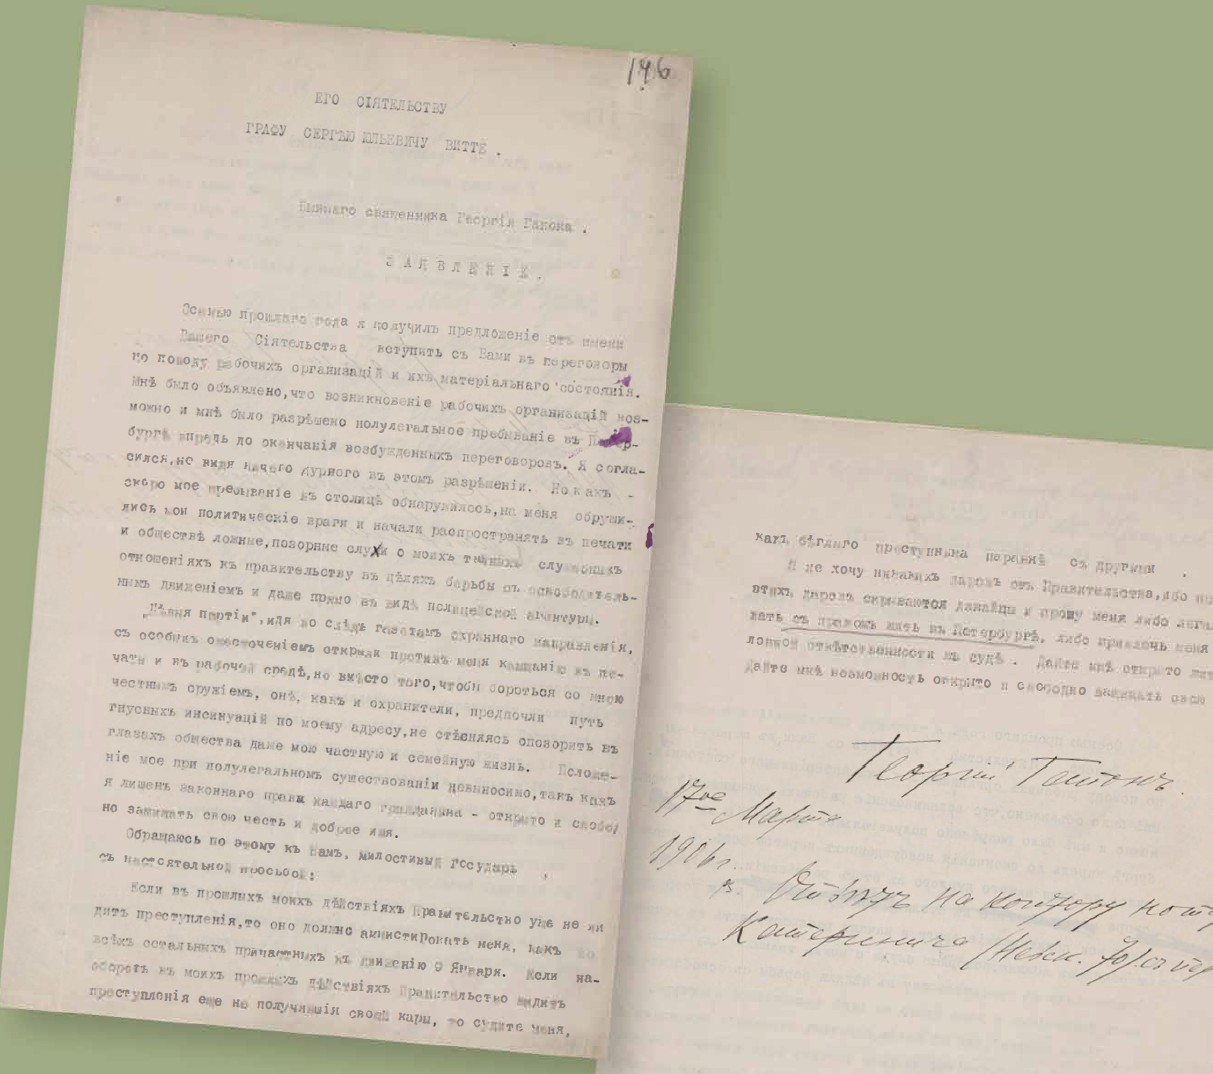 146
ЕГО СІЯТЕЛЬСТВУ
ГРАФУ СЕРГѢЮ ЮЛЬЕВИЧУ ВИТТЕ.
Бывшаго священника Георгія Гапона.
ЗАЯВЛЕНІЕ.
Осенью прошлаго года я получилъ предложеніе отъ имени
Вашего Сіятельства вступить съ Вами въ переговоры
по поводу рабочихъ организацій и ихъ матеріальнаго состоянія.
Мнѣ было объявлено, что возникновеніе рабочихъ организацій воз-
можно и мнѣ было разрѣшено полулегальное пребываніе въ Петер-
бургѣ впредь до окончанія возбужденныхъ переговоровъ. Я согла-
сился, не видя ничего дурного въ этомъ разрѣшеніи. Но какъ -
скоро мое пребываніе въ столицѣ обнаружилось, на меня обруши-
лись мои политическіе враги и начали распространять въ печати
и обществѣ ложные, позорные слухи о моихъ тайныхъ служебныхъ
отношеніяхъ къ правительству въ цѣляхъ барьбы съ освободитель-
нымъ движеніемъ и даже прямо въ видѣ полицейской авантюры.
„Лѣвыя партіи", идя во слѣдъ газетамъ охраннаго направленія,
съ особымъ ожесточеніемъ открыли противъ меня кампанію въ пе-
чати и въ рабочей средѣ, но вмѣсто того, чтобы бороться со мною
честнымъ оружіемъ, онѣ, какъ и охранители, предпочли путь
гнусныхъ инсинуацій по моему адресу, не стѣсняясь опозорить въ
глазахъ общества даже мою частную и семейную жизнь. Положе-
ніе мое при полулегальномъ существованіи невыносимо, такъ какъ
я лишенъ законнаго права каждаго гражданина - открыто и свобод
но защищать свою честь и доброе имя.
Обращаюсь по этому къ Вамъ, Милостивый Государь,
съ настоятельной просьбой:
Если въ прошлыхъ моихъ дѣйствіяхъ Правительство уже не ви
дитъ преступленія, то оно должно амнистировать меня, какъ
всѣхъ остальныхъ причастныхъ къ движенію 9 Января. Если на-
оборотъ въ моихъ прошлыхъ дѣйствіяхъ Правительство видитъ
преступленія еще не получившія своей кары, то судите меня,
какъ бѣглаго преступника наравнѣ съ другими.
Я не хочу никакихъ даровъ отъ Правительства, ибо по
этихъ даровъ скрываются данайцы и прошу меня либо легал
вать съ правомъ жить въ Петербургѣ, либо привлечь меня
ловной отвѣтственности въ судѣ. Дайте мнѣ открыто
Дайте мнѣ возможность открыто и свободно защищать свою
Георгій Гапонъ.
17ое Марта
1906 г.
Отвѣтъ на контору